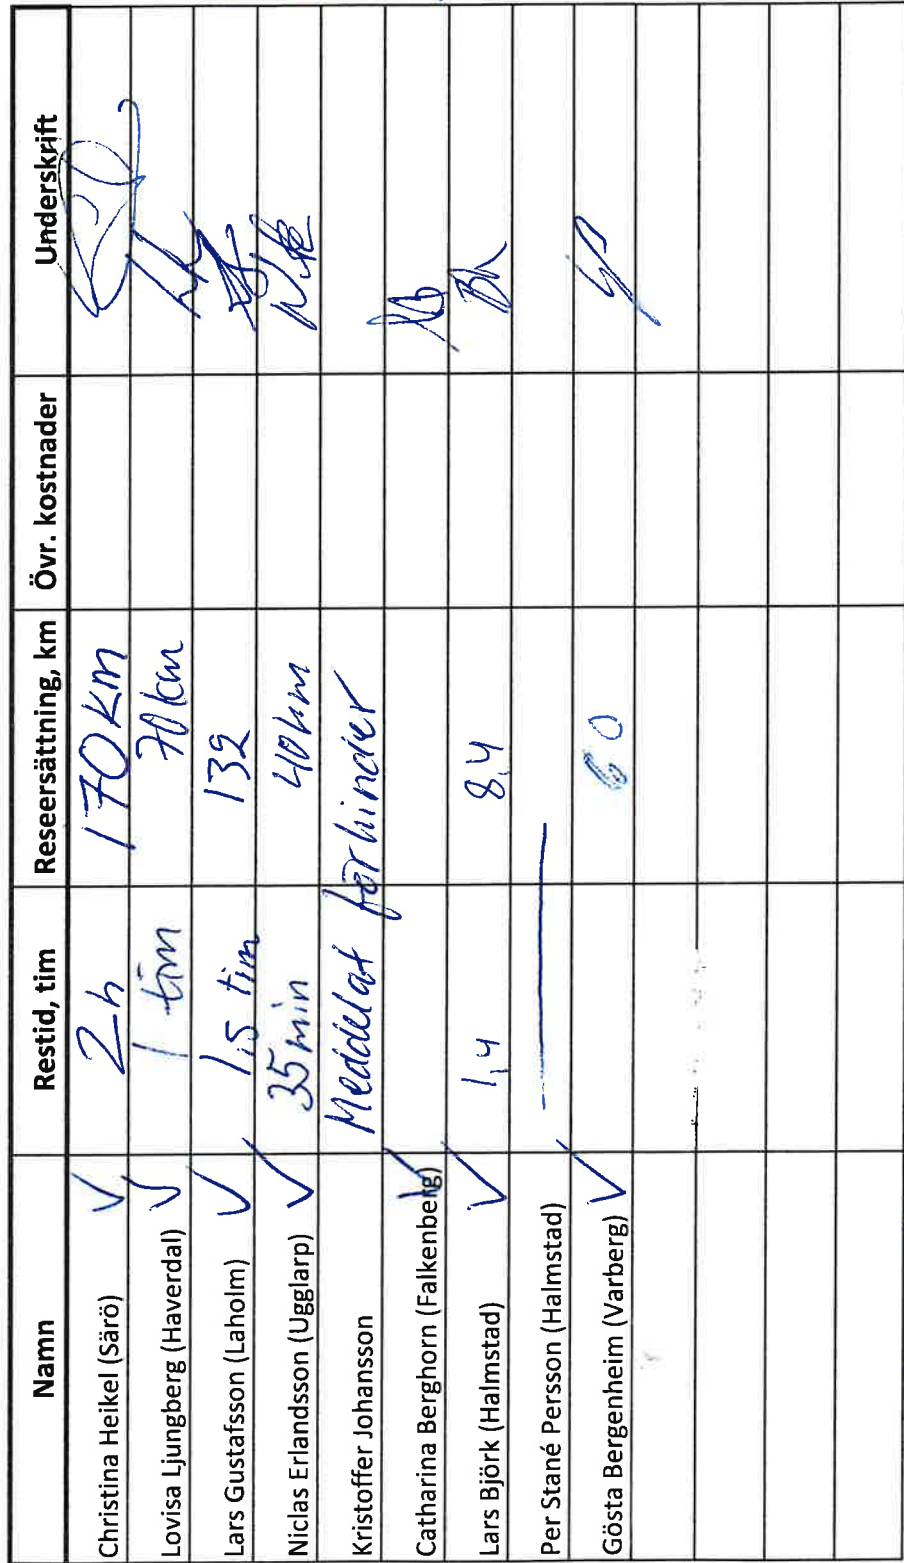 Namn Restid, tim Reseersättning, km Övr. kostnader Underskrift
Christina Heikel (Särö) ✓ 2h 170 km
Lovisa Ljungberg (Haverdal) ✓ 1 tim 70 km
Lars Gustafsson (Laholm) ✓ 1,5 tim 132
Niclas Erlandsson (Ugglarp) ✓ 35 min 40 km
Kristoffer Johansson Meddelat förhinder
Catharina Berghorn (Falkenberg) ✓
Lars Björk (Halmstad) ✓ 1,4 8,4
Per Stané Persson (Halmstad)
Gösta Bergenheim (Varberg) ✓ 60